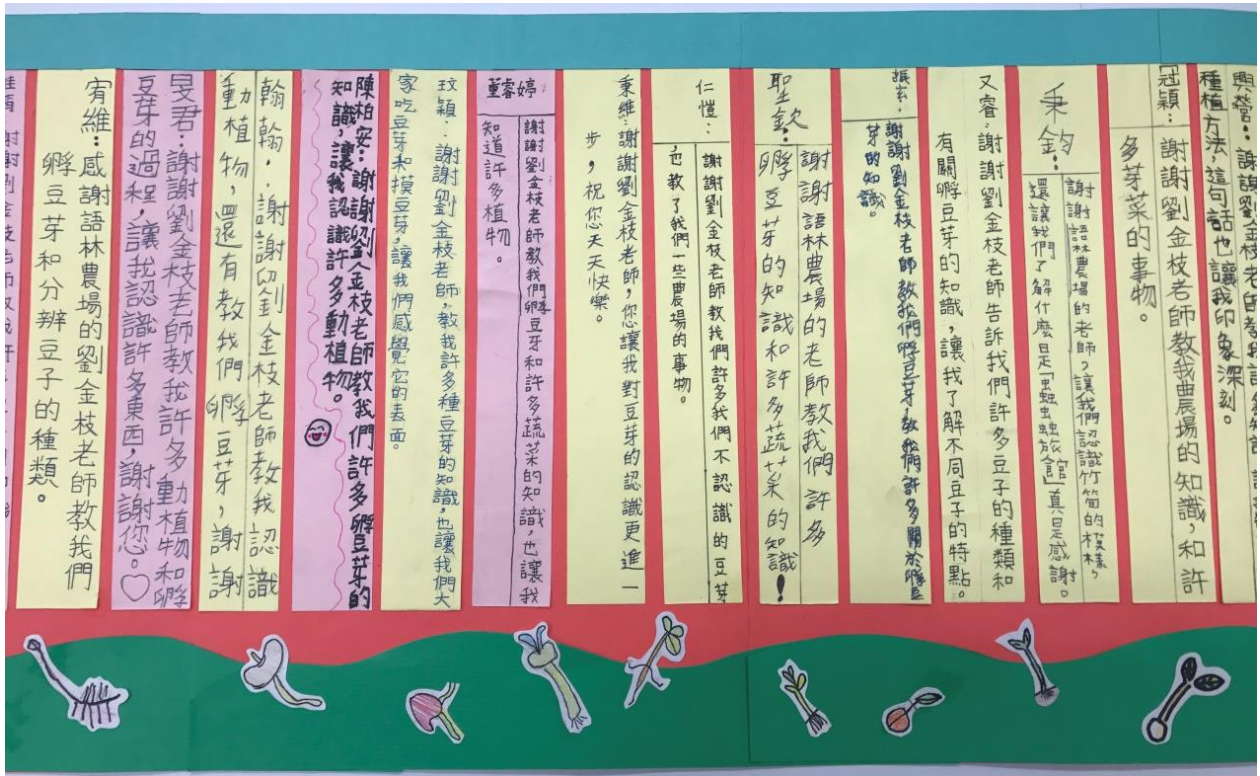 興營：謝謝劉金枝老師的教我
種植方法，這句話也讓我印象深刻。
冠穎：謝謝劉金枝老師教我農場的知識，和許
多芽菜的事物。
秉鈞：
謝謝語林農場的老師，讓我們認識竹筍的模樣，
還讓我們了解什麼是「蟲蟲旅館」真是感謝。
又睿：謝謝劉金枝老師告訴我們許多豆子的種類和
有關孵豆芽的知識，讓我了解不同豆子的特點。
謝謝劉金枝老師教我們孵豆芽，教我們許多關於豌豆
芽的知識。
聖欽：
謝謝語林農場的老師教我們許多
孵豆芽的知識和許多蔬菜的知識！
仁愷：
謝謝劉金枝老師教我們許多我們不認識的豆芽
，也教了我們一些農場的事物。
秉維：謝謝劉金枝老師，您讓我對豆芽的認識更進一
步，祝您天天快樂。
董睿婷
謝謝劉金枝老師教我們孵豆芽和許多蔬菜的知識，也讓我
知道許多植物。
玟穎：謝謝劉金枝老師，教我許多種豆芽的知識，也讓我們大
家吃豆芽和摸豆芽，讓我們感覺它的表面。
陳柏安：謝謝劉金枝老師教我們許多孵豆芽的
知識，讓我認識許多動植物。
翰翰：謝謝劉金枝老師教我認識
動植物，還有教我們孵豆芽，謝謝
旻君：謝謝劉金枝老師教我許多動植物和孵
豆芽的過程，讓我認識許多東西，謝謝您。♡
宥維：感謝語林農場的劉金枝老師教我們
孵豆芽和分辨豆子的種類。